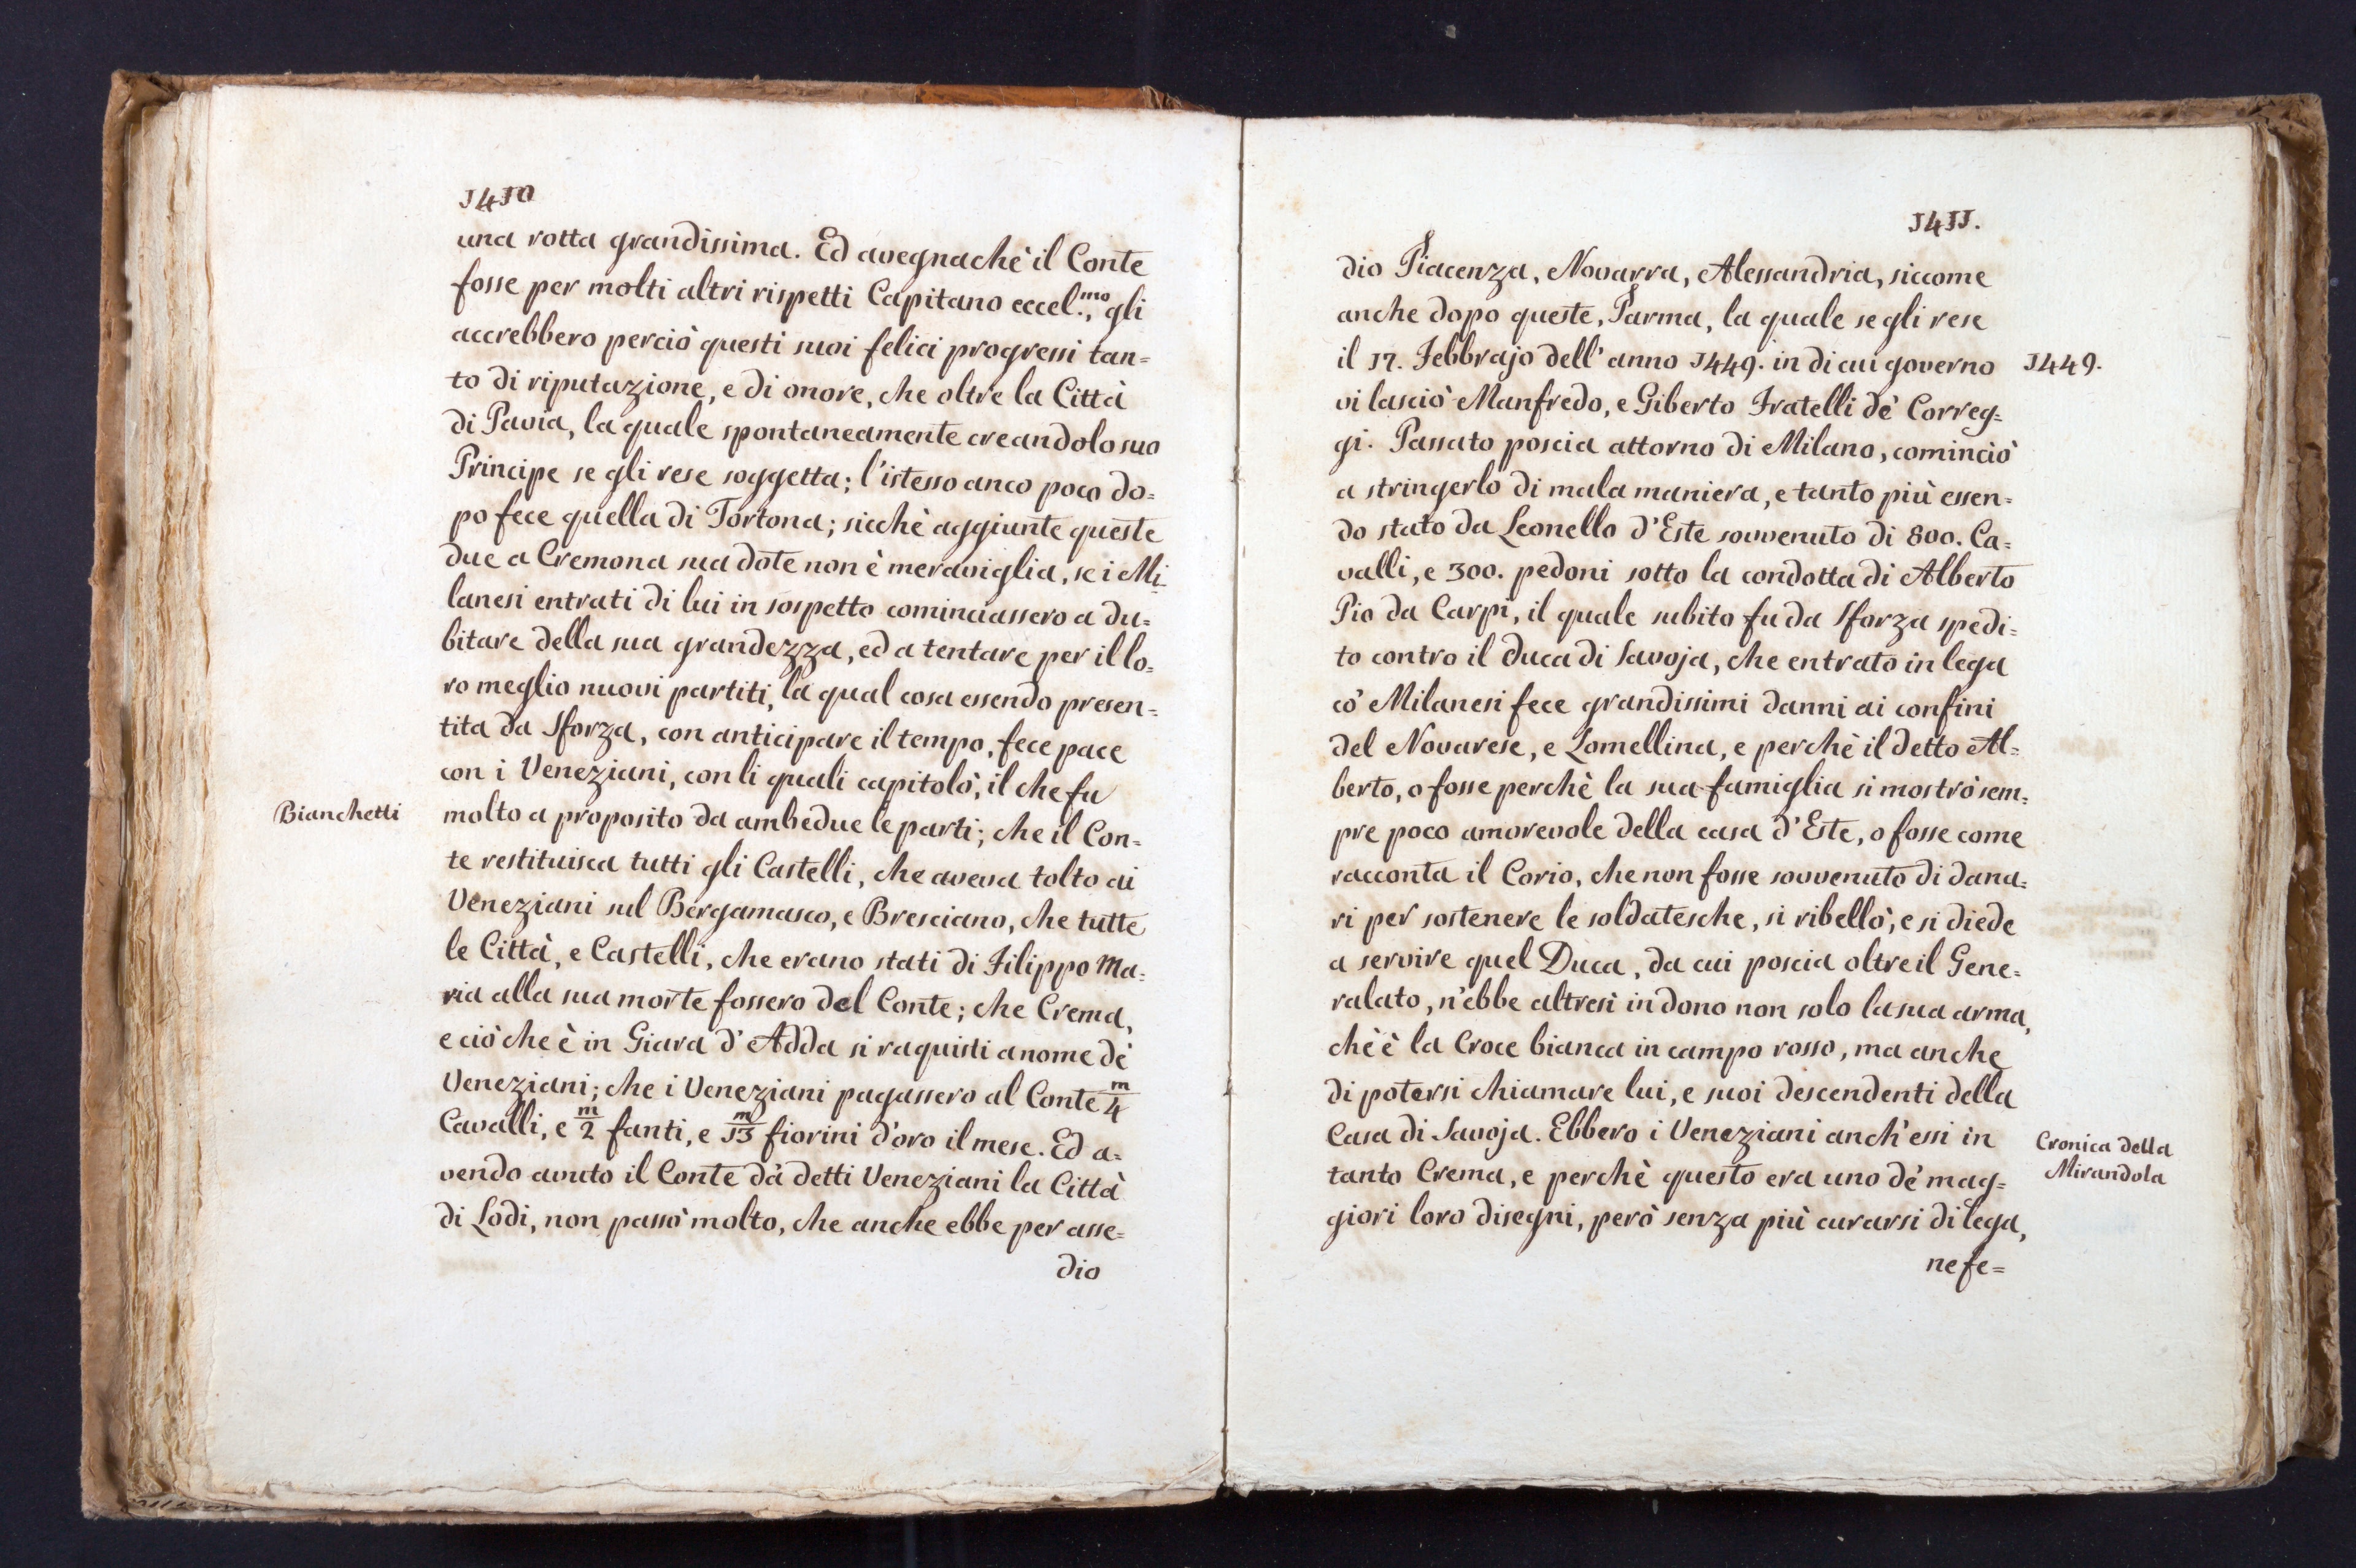 1410
una rotta grandissima. Ed avegnachè il Conte
fosse per molti altri rispetti Capitano eccel.mo, gli
accrebbero perciò questi suoi felici progressi tan=
to di riputazione, e di onore, che oltre la Città
di Pavia, la quale spontaneamente creandolo suo
Principe se gli rese soggetta; l'istesso anco poco do=
po fece quella di Tortona; sicchè aggiunte queste
due a Cremona sua dote non è meraviglia, se i Mi
lanesi entrati di lui in sospetto cominciassero a du=
bitare della sua grandezza, ed a tentare per il lo=
ro meglio nuovi partiti, la qual cosa essendo presen=
tita da Sforza, con anticipare il tempo, fece pace
con i Veneziani, con li quali capitolò, il che fu
Bianchetti
molto a proposito da ambedue le parti; che il Con=
te restituisca tutti gli Castelli, che aveva tolto ai
Veneziani sul Bergamasco, e Bresciano, che tutte
le Città, e Castelli, che erano stati di Filippo Ma=
ria alla sua morte fossero del Conte; che Crema,
e ciò che è in Giara d'Adda si raquisti a nome de'
Veneziani; che i Veneziani pagassero al Conte m/4
Cavalli, e m/2 fanti, e m/13 fiorini d'oro il mese. Ed a=
vendo avuto il Conte da detti Veneziani la Città
di Lodi, non passò molto, che anche ebbe per asse=
dio
1411.
dio Piacenza, Novarra, Alessandria, siccome
anche dopo queste, Parma, la quale se gli rese
il 17. Febbrajo dell'anno 1449. in di cui governo
1449.
vi lasciò Manfredo, e Giberto Fratelli de' Correg=
gi. Passato poscia attorno di Milano, cominciò
a stringerlo di mala maniera, e tanto più essen=
do stato da Leonello d'Este sovvenuto di 800. Ca=
valli, e 300. pedoni sotto la condotta di Alberto
Pio da Carpi, il quale subito fu da Sforza spedi=
to contro il Duca di Savoja, che entrato in lega
co' Milanesi fece grandissimi danni ai confini
del Novarese, e Lomellina, e perchè il detto Al=
berto, o fosse perchè la sua famiglia si mostrò sem=
pre poco amorevole della casa d'Este, o fosse come
racconta il Corio, che non fosse sovvenuto di dana=
ri per sostenere le soldatesche, si ribellò, e si diede
a servire quel Duca, da cui poscia oltre il Gene=
ralato, n'ebbe altresì in dono non solo la sua arma,
ch'è la Croce bianca in campo rosso, ma anche
di potersi chiamare lui, e suoi descendenti della
Casa di Savoja. Ebbero i Veneziani anch'essi in
Cronica della
Mirandola
tanto Crema, e perchè questo era uno de' mag=
giori loro disegni, però senza più curarsi di lega,
ne fe=